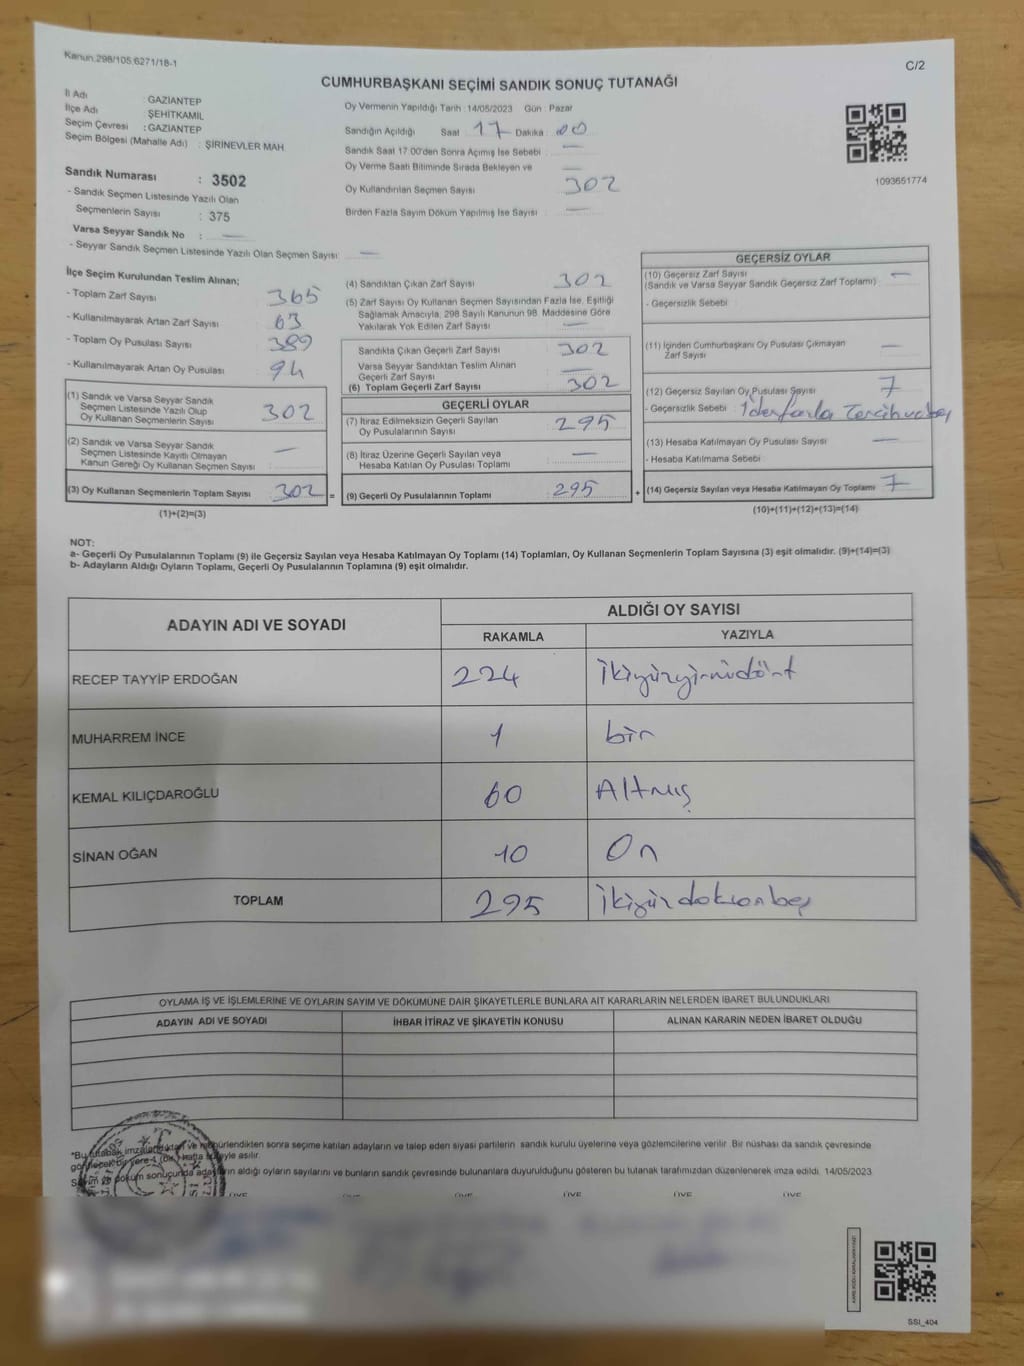 Kanun:298/105,6271/18-1
C/2
CUMHURBAŞKANI SEÇİMİ SANDIK SONUÇ TUTANAĞI
İl Adı : GAZİANTEP
İlçe Adı ŞEHİTKAMİL
Seçim Çevresi : GAZİANTEP
Seçim Bölgesi (Mahalle Adı) : ŞİRİNEVLER MAH
Sandık Numarası : 3502
- Sandık Seçmen Listesinde Yazılı Olan
Seçmenlerin Sayısı : 375
Varsa Seyyar Sandık No : —
- Seyyar Sandık Seçmen Listesinde Yazılı Olan Seçmen Sayısı: —
Oy Vermenin Yapıldığı Tarih :14/05/2023 Gün : Pazar
Sandığın Açıldığı Saat 17 Dakika : 00
Sandık Saat 17.00'den Sonra Açımış İse Sebebi : —
Oy Verme Saati Bitiminde Sırada Bekleyen ve —
Oy Kullandırılan Seçmen Sayısı 302
Birden Fazla Sayım Döküm Yapılmış İse Sayısı : —
1093651774
İlçe Seçim Kurulundan Teslim Alınan;
- Toplam Zarf Sayısı 365
- Kullanılmayarak Artan Zarf Sayısı 63
- Toplam Oy Pusulası Sayısı 389
- Kullanılmayarak Artan Oy Pusulası 94
(1) Sandık ve Varsa Seyyar Sandık
Seçmen Listesinde Yazılı Olup
Oy Kullanan Seçmenlerin Sayısı 302
(2) Sandık ve Varsa Seyyar Sandık
Seçmen Listesinde Kayıtlı Olmayan
Kanun Gereği Oy Kullanan Seçmen Sayısı —
(3) Oy Kullanan Seçmenlerin Toplam Sayısı 302 =
(1)+(2)=(3)
(4) Sandıktan Çıkan Zarf Sayısı 302
(5) Zarf Sayısı Oy Kullanan Seçmen Sayısından Fazla İse, Eşitliği
Sağlamak Amacıyla, 298 Sayılı Kanunun 98. Maddesine Göre
Yakılarak Yok Edilen Zarf Sayısı —
Sandıkta Çıkan Geçerli Zarf Sayısı 302
Varsa Seyyar Sandıktan Teslim Alınan
Geçerli Zarf Sayısı —
(6) Toplam Geçerli Zarf Sayısı 302
GEÇERLİ OYLAR
(7) İtiraz Edilmeksizin Geçerli Sayılan
Oy Pusulalarının Sayısı 295
(8) İtiraz Üzerine Geçerli Sayılan veya
Hesaba Katılan Oy Pusulası Toplamı —
(9) Geçerli Oy Pusulalarının Toplamı 295 +
GEÇERSİZ OYLAR
(10) Geçersiz Zarf Sayısı —
(Sandık ve Varsa Seyyar Sandık Geçersiz Zarf Toplamı)
- Geçersizlik Sebebi :
(11) İçinden Cumhurbaşkanı Oy Pusulası Çıkmayan
Zarf Sayısı —
(12) Geçersiz Sayılan Oy Pusulası Sayısı 7
- Geçersizlik Sebebi : 1'den fazla Tercih
(13) Hesaba Katılmayan Oy Pusulası Sayısı —
- Hesaba Katılmama Sebebi :
(14) Geçersiz Sayılan veya Hesaba Katılmayan Oy Toplamı 7
(10)+(11)+(12)+(13)=(14)
NOT:
a- Geçerli Oy Pusulalarının Toplamı (9) ile Geçersiz Sayılan veya Hesaba Katılmayan Oy Toplamı (14) Toplamları, Oy Kullanan Seçmenlerin Toplam Sayısına (3) eşit olmalıdır. (9)+(14)=(3)
b- Adayların Aldığı Oyların Toplamı, Geçerli Oy Pusulalarının Toplamına (9) eşit olmalıdır.
ADAYIN ADI VE SOYADI ALDIĞI OY SAYISI
RAKAMLA YAZIYLA
RECEP TAYYİP ERDOĞAN 224 ikiyüzyirmidört
MUHARREM İNCE 1 bir
KEMAL KILIÇDAROĞLU 60 Altmış
SİNAN OĞAN 10 On
TOPLAM 295 ikiyüzdoksanbeş
OYLAMA İŞ VE İŞLEMLERİNE VE OYLARIN SAYIM VE DÖKÜMÜNE DAİR ŞİKAYETLERLE BUNLARA AİT KARARLARIN NELERDEN İBARET BULUNDUKLARI
ADAYIN ADI VE SOYADI İHBAR İTİRAZ VE ŞİKAYETİN KONUSU ALINAN KARARIN NEDEN İBARET OLDUĞU
*Bu tutanak imzalandıktan ve mühürlendikten sonra seçime katılan adayların ve talep eden siyasi partilerin sandık kurulu üyelerine veya gözlemcilerine verilir. Bir nüshası da sandık çevresinde
görülecek bir yere 1 (bir) hafta süreyle asılır.
Sayım ve döküm sonucunda adayların aldığı oyların sayılarını ve bunların sandık çevresinde bulunanlara duyurulduğunu gösteren bu tutanak tarafımızdan düzenlenerek imza edildi. 14/05/2023
SSI_404